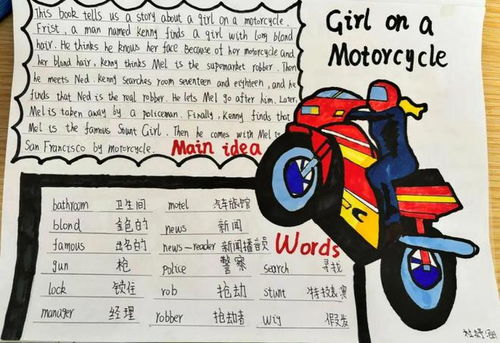 This book tells us a story about a girl on a motorcycle.
Frist, a man named kenny finds a girl with long blond
hair. He thinks he knows her face because of her motorcycle and
her blond hair, kenny thinks Mel is the supermarket robber. Then
he meets Ned. Kenny searches room seventeen and eighteen, and he
finds that Ned is the real robber. He lets Mel go after him. Later,
Mel is taken away by a policeman. Finally, kenny finds that
Mel is the famous Stunt Girl. Then he comes with Mel to
San Francisco by motorcycle.
Main idea
Girl on a
Motorcycle
Words
bathroom 卫生间 motel 汽车旅馆
blond 金色的 news 新闻
famous 出名的 news-reader 新闻播音员
gun 枪 police 警察 search 寻找
lock 锁住 rob 抢劫 stunt 特技表演
manager 经理 robber 抢劫者 wig 假发